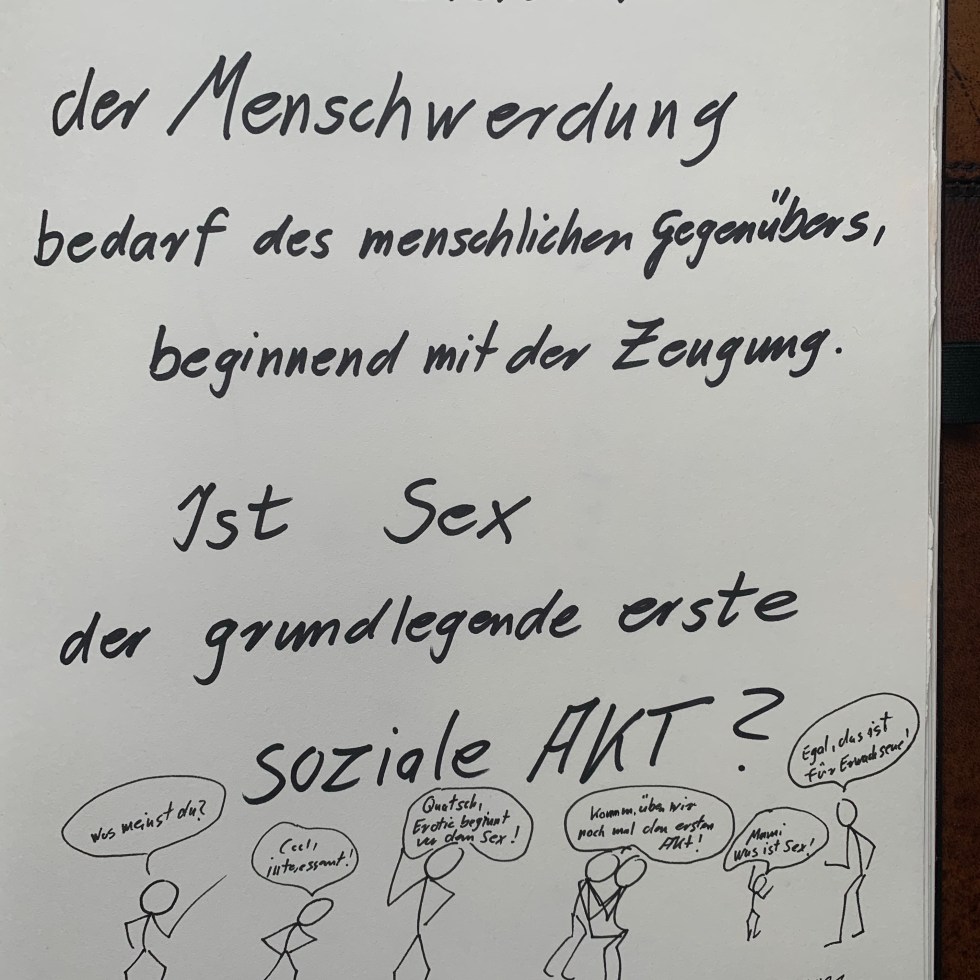 der Menschwerdung
bedarf des menschlichen Gegenübers,
beginnend mit der Zeugung.
Ist Sex
der grundlegende erste
soziale AKT?
Was meinst du?
Cool,
interessant!
Quatsch,
Erotic beginnt
vor dem Sex!
Komm, üben wir
noch mal den ersten
AKt!
Mami
was ist Sex!
Egal, das ist
für Erwachsene!